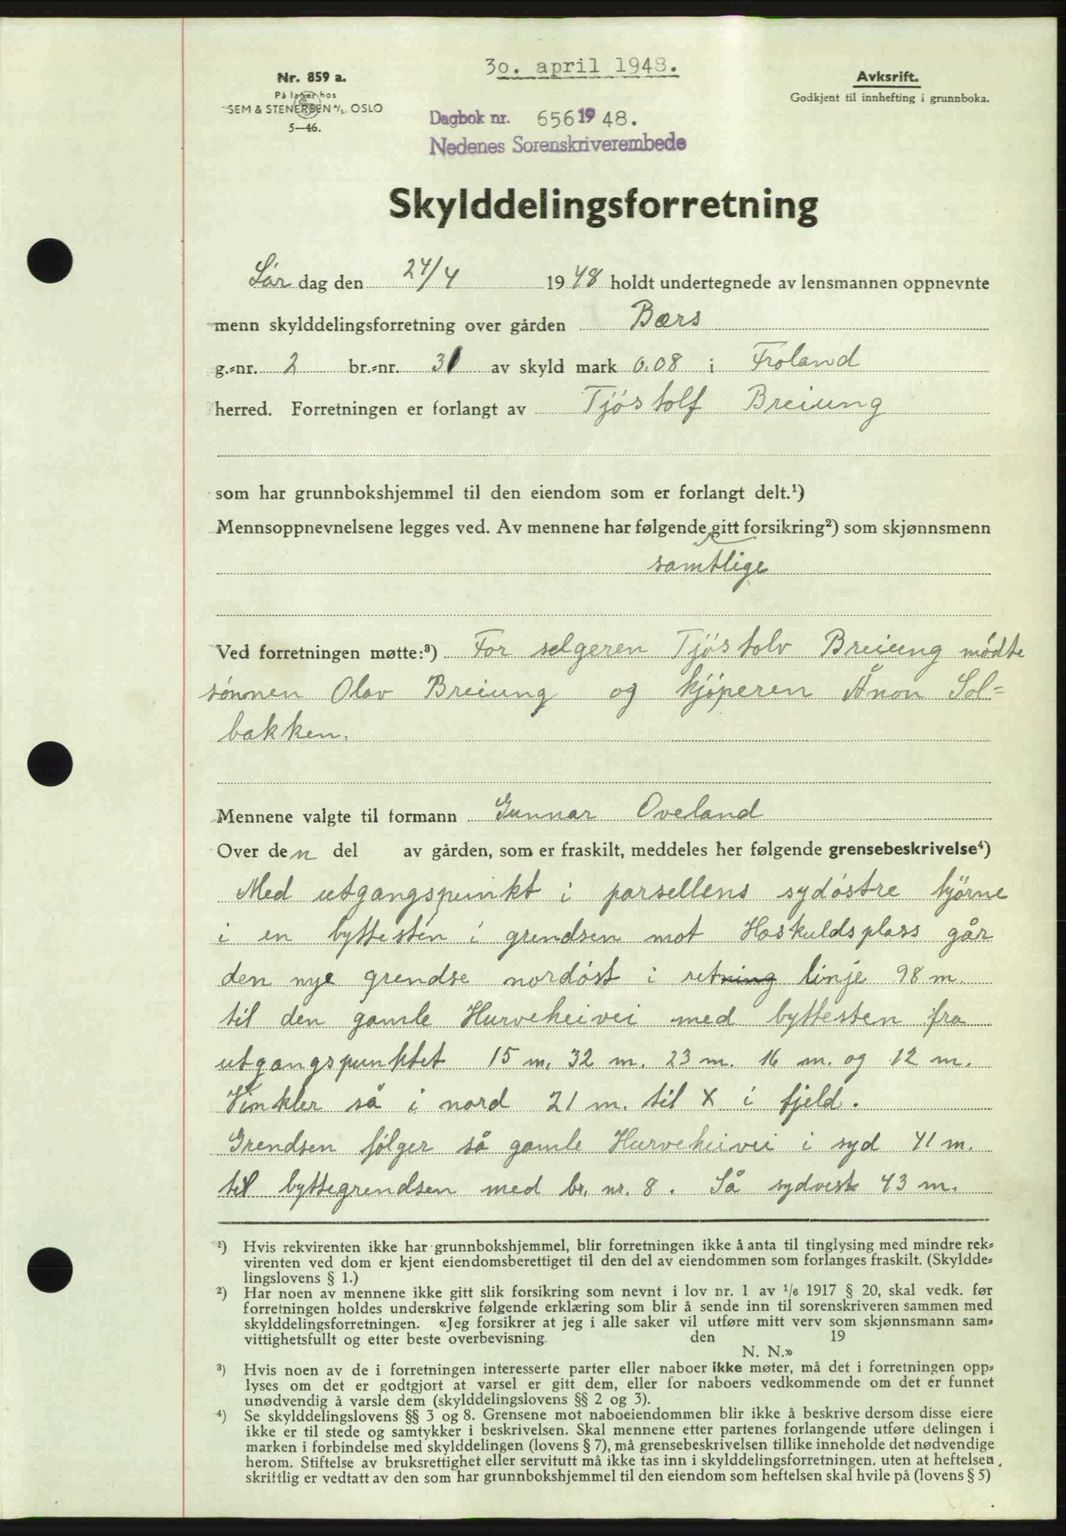 30. april 1948.
Nr. 859 a.
På lager hos
SEM & STENERSEN A/S, OSLO
5—46.
Avksrift.
Godkjent til innhefting i grunnboka.
Dagbok nr. 656 1948.
Nedenes Sorenskriverembede
Skylddelingsforretning
Lør dag den 24/4 1948 holdt undertegnede av lensmannen oppnevnte
menn skylddelingsforretning over gården Bærs
g.-nr. 2 br.-nr. 31 av skyld mark 0.08 i Froland
herred. Forretningen er forlangt av Tjöstolf Breiung
som har grunnbokshjemmel til den eiendom som er forlangt delt.¹)
Mennsoppnevnelsene legges ved. Av mennene har følgende gitt forsikring²) som skjønnsmenn
samtlige
Ved forretningen møtte:³) For selgeren Tjöstolv Breiung mödte
sönnen Olav Breiung og kjöperen Ånon Sol=
bakken.
Mennene valgte til formann Gunnar Oveland
Over den del av gården, som er fraskilt, meddeles her følgende grensebeskrivelse⁴)
Med utgangspunkt i parsellens sydöstre hjörne
i en byttestén i grendsen mot Hoskuldsplass går
den nye grendse nordöst i retning linje 98 m.
til den gamle Hurveheivei med byttesten fra
utgangspunktet 15 m. 32 m. 23 m. 16 m. og 12 m.
Vinkler så i nord 21 m. til X i fjeld.
Grendsen fölger så gamle Hurveheivei i syd 41 m.
til byttegrendsen med br. nr. 8. Så sydvest 43 m.
¹) Hvis rekvirenten ikke har grunnbokshjemmel, blir forretningen ikke å anta til tinglysing med mindre rek-
virenten ved dom er kjent eiendomsberettiget til den del av eiendommen som forlanges fraskilt. (Skyldde-
lingslovens § 1.)
²) Har noen av mennene ikke gitt slik forsikring som nevnt i lov nr. 1 av 1/6 1917 § 20, skal vedk. før
forretningen holdes underskrive følgende erklæring som blir å sende inn til sorenskriveren sammen med
skylddelingsforretningen. «Jeg forsikrer at jeg i alle saker vil utføre mitt verv som skjønnsmann sam-
vittighetsfullt og etter beste overbevisning. den 19
N. N.»
³) Hvis noen av de i forretningen interesserte parter eller naboer ikke møter, må det i forretningen opp-
lyses om det er godtgjort at varsel er gitt dem, eller for naboers vedkommende om det er funnet
unødvendig å varsle dem (skylddelingslovens §§ 2 og 3).
⁴) Se skylddelingslovens §§ 3 og 8. Grensene mot naboeiendommen blir ikke å beskrive dersom disse eiere
ikke er til stede og samtykker i beskrivelsen. Skal mennene etter partenes forlangende utføre delingen i
marken i forbindelse med skylddelingen (lovens § 7), må grensebeskrivelsen tillike inneholde det nødvendige
herom. Stiftelse av bruksrettighet eller servitutt må ikke tas inn i skylddelingsforretningen. uten at heftelsen
skriftlig er vedtatt av den som har grunnbokshjemmel til den eiendom som heftelsen skal hvile på (lovens § 5)